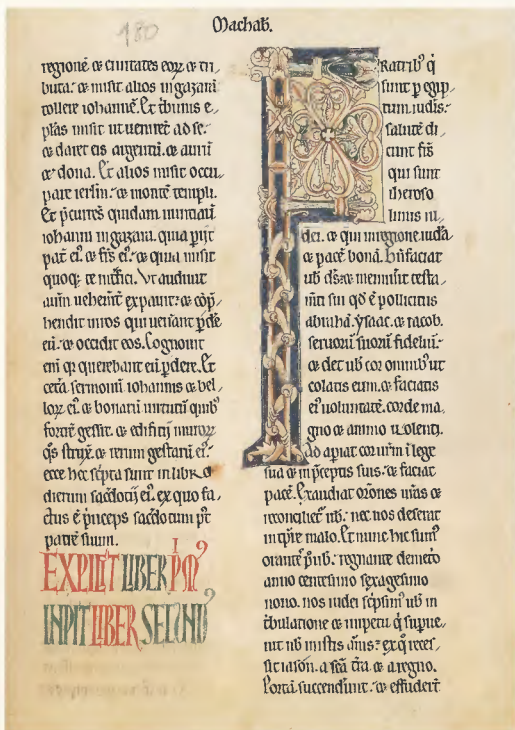 Machab.
180
regionē & ciuitates eoꝝ & tri,
buta. & misit alios in gazarā
tollere iohannē. Et tribunis e,
plas misit ut ueniret ad se.
& daret eis argentū. & aurū
& dona. Et alios misit occu,
pare ierlm. & montē templi.
Et p̄curres quidam nuntiauit
iohanni in gazara. quia perijt
pat̄ ei᾽. & frs̄ ei᾽. & quia misit
quoq; te int̄fici. Vt audiuit
autē uehemēt expauit. & cōp̄,
hendit uiros qui uenerant p̄dere
eū. & occidit eos. Cognouit
eni qꝛ querebant eū perdere. Et
cet̄a sermonū iohannis & bel,
loꝝ ei᾽ & bonarū uirtutū quib᾽
fortit̄ gessit. & edificij muroꝝ
q̄s struxit & rerum gestarū ei᾽.
ecce hec sc̄pta sunt in libro
dierum sac̄dotij ei᾽. ex quo fa,
ctus ē p̄nceps sac̄dotum p̄t
patrē suum.
EXPLICIT LIBER P̄M᾽
INCIPIT LIBER SECUND᾽
FRatrib᾽ q̄
sunt p̄ egip,
tum iudis.
salutē di
cunt frs̄
qui sunt
iheroso
limis iu,
dei. & qui in regione iudea
& pacē bonā. Bn̄faciat
ub̄ ds̄ & meminerit testa,
mt̄i sui qd̄ ē pollicitus
abrahā. ysaac. & iacob.
seruorū suorū fidelium.
& det ub̄ cor omnib᾽ ut
colatis eum. & faciatis
ei᾽ uoluntatē. corde ma,
gno & animo uolenti.
Ad apiat cor ur̄m ī lege
sua & in p̄ceptis suis. & faciat
pacē. Exaudiat orōnes ur̄as &
reconciliet ub̄. nec uos deserat
in tp̄re malo. Et nunc hic sum᾽
orantes p̄ uob̄. regnante demetrio
anno centesimo sexagesimo
nono. nos iudei sc̄psim᾽ ub̄ in
tribulatione & impetu q̄ supue,
nit nob̄ in istis annis. ex q̄ reces,
sit iason. a sc̄ā tr̄a. & a regno.
Portā succenderunt. & effuderūt